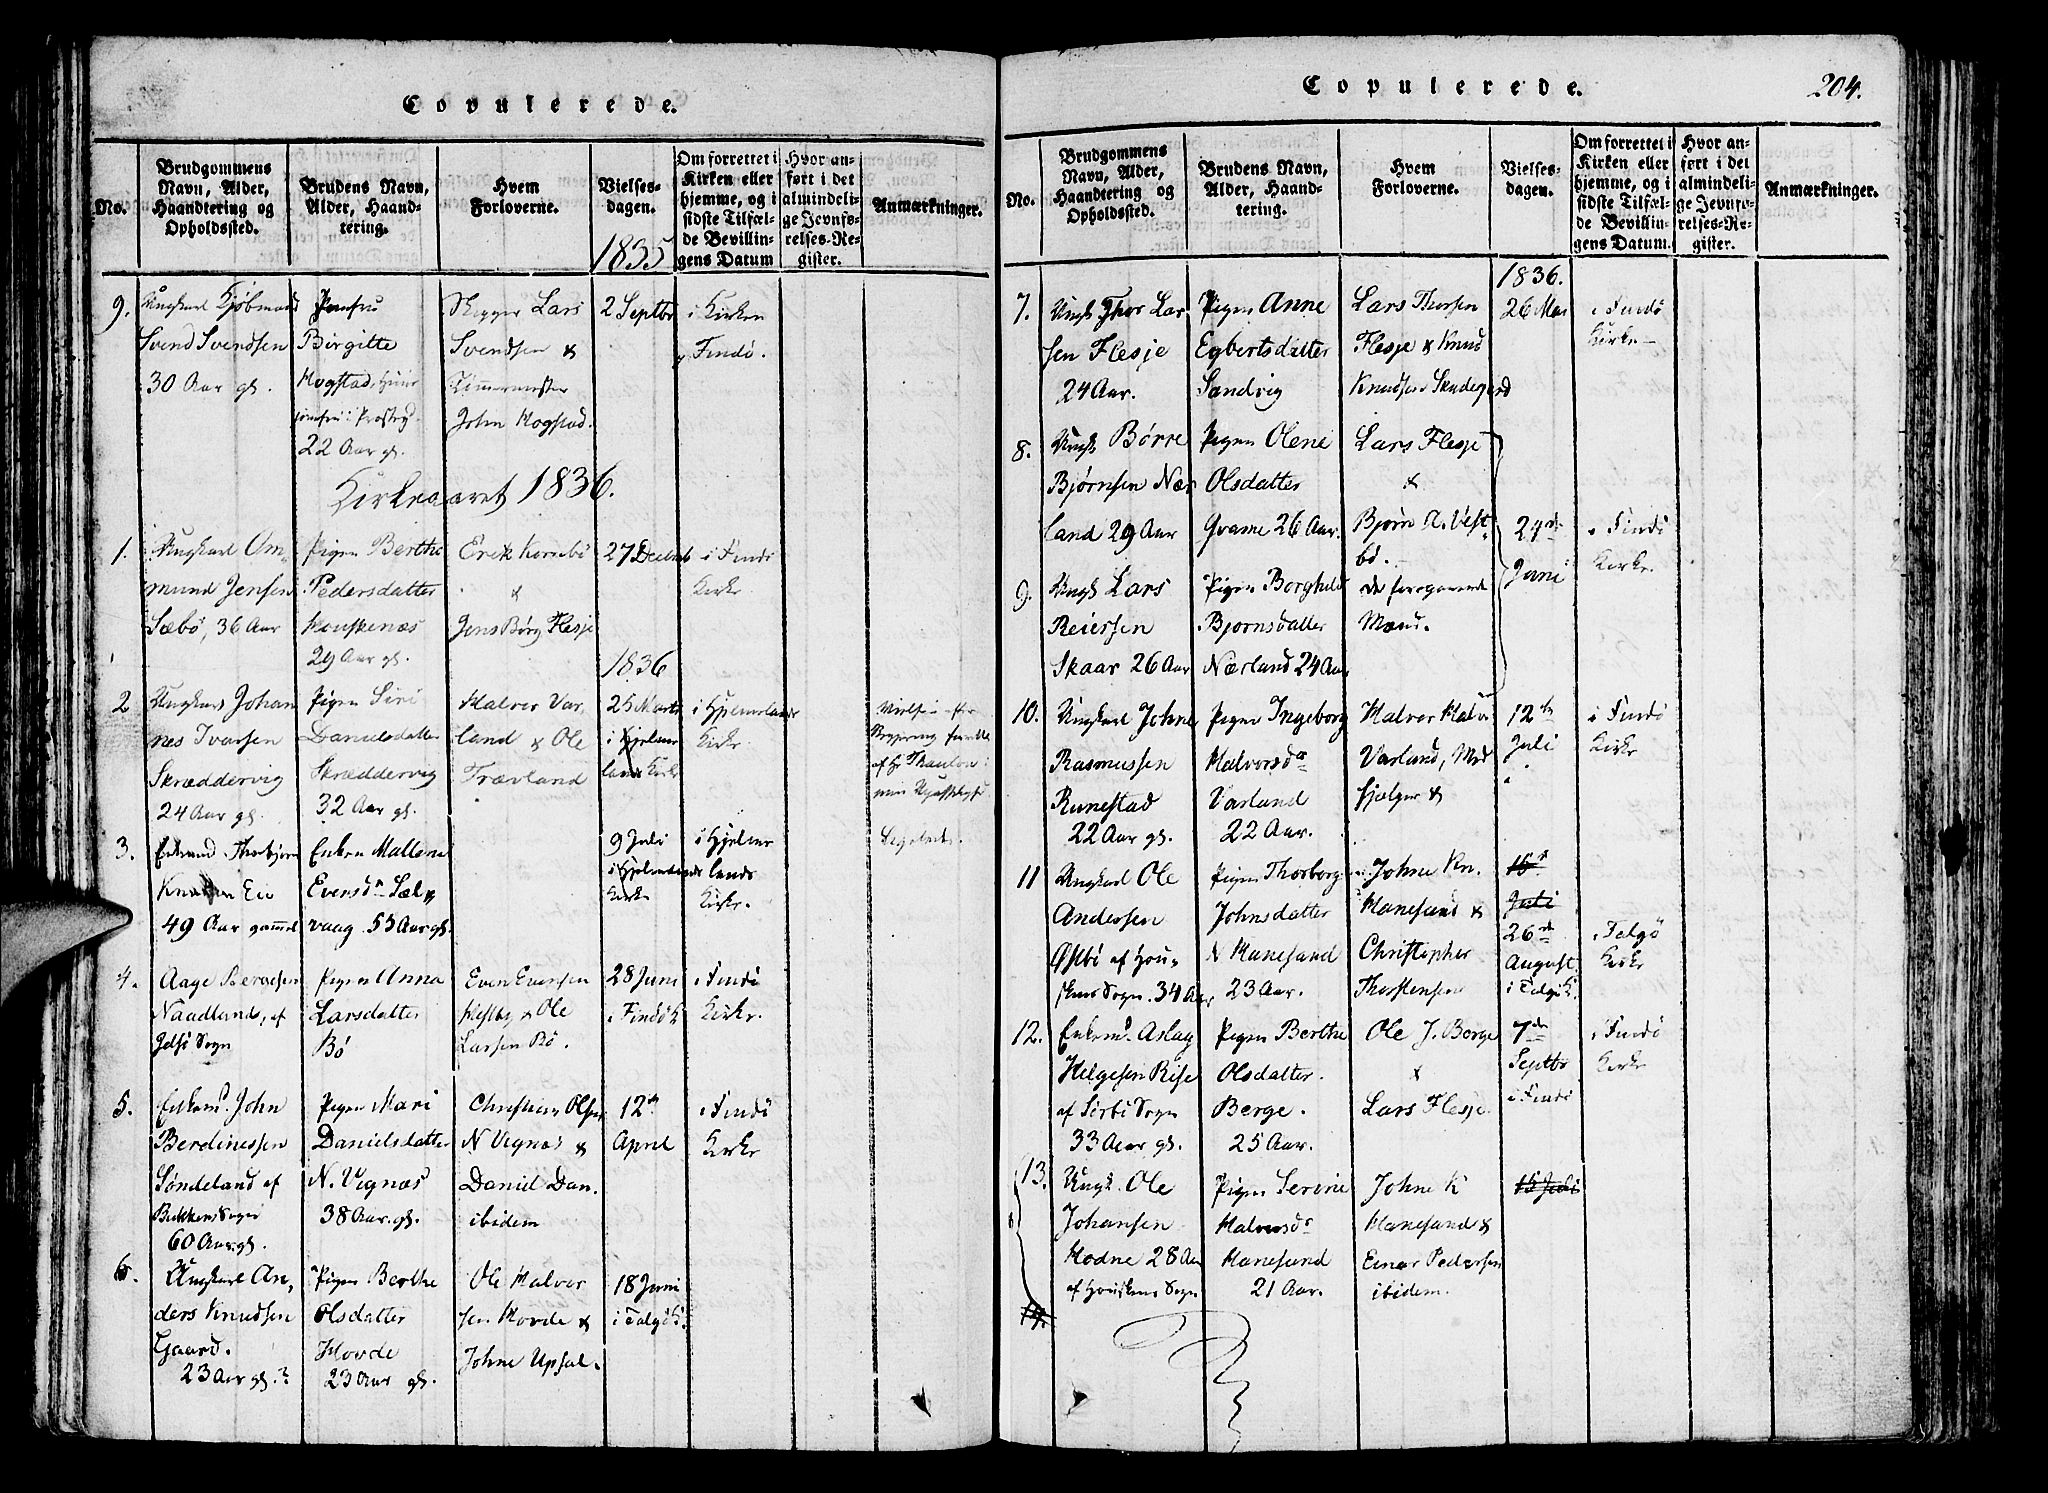 Copulerede.
No.
Brudgommens
Navn, Alder,
Haandtering og
Opholdssted.
Brudens Navn,
Alder, Haand-
tering.
Hvem
Forloverne.
Vielses-
dagen.
1835
Om forrettet i
Kirken eller
hjemme, og i
sidste Tilfæl-
de Bevillin-
gens Datum
Hvor an-
ført i det
almindeli-
ge Jevnfø-
relses-Re-
gister.
Anmærkninger.
9.
Ungkarl Kjøbmand
Svend Svendsen
30 Aar gl.
Jomfru
Birgitte
Hogstad
22 Aar gl.
Skipper Lars
Svendsen &
John Hogstad.
2 Septbr
i Kirken
Findö.
Kirkeaaret 1836.
1.
Ungkarl Om-
mund Jensen
Sæbö, 36 Aar
Pigen Berthe
Pedersdatter
Houskenæs
29 Aar gl.
Erik Kornbö
&
Jens Börg Flesje
27 Decemb
i Findö
Kirke
1836
2
Ungkarl Johan
nes Ivarsen
Skræddervig
24 Aar gl.
Pigen Siri
Danielsdatter
Skræddervig
32 Aar gl.
Halvor Var
land & Ole
Trævland
25 Marts
i Hjelme
lands Kirke
i Hjelmelands
Kirke.
3.
Enkemand Thorbjörn
Knudsen Eie
49 Aar gammel
Enken Mallene
Evensdr Sæl„
vaag. 55 Aar gl.
9 Juli
i Hjelmelands
Kirke
i Hjelme
lands
Kirke.
4.
Aage Bergesen
Naadland, af
Jelsö Sogn
Pigen Anna
Larsdatter
Bö
Even Evensen
Hesby & Ole
Larsen Bö.
28 Juni
i Findö K
i Findö
Kirke.
5.
Enkem. John
Berdinessen
Söndeland af
Bukken Sogn
60 Aar gl.
Pigen Mari
Danielsdatter
N. Vignæs
38 Aar gl.
Christian Olsen
N Vignæs &
Daniel Dan.
ibidem
12te
April
i Findö
Kirke
6.
Ungkarl An,
ders Knudsen
Gaard.
23 Aar gl.
Pigen Berthe
Olsdatter
Hovde
23 Aar gl.
Ole Halvor
sen Hovde &
Johne Upsal.
18 Juni
i Talgö K.
Copulerede.
204.
No.
Brudgommens
Navn, Alder,
Haandtering og
Opholdssted.
Brudens Navn,
Alder, Haand-
tering.
Hvem
Forloverne.
Vielses-
dagen.
Om forrettet i
Kirken eller
hjemme, og i
sidste Tilfæl-
de Bevillin-
gens Datum.
Hvor an-
ført i det
almindeli-
ge Jevnfø-
relses-Re-
gister.
Anmærkninger.
1836.
7.
Ungk Thor Lar
sen Flesje
24 Aar.
Pigen Anne
Egbertsdatter
Sandvig
Lars Thorsen
Flesje & Knud
Knudsen Skudegard
26 Mai
i Findö
Kirke
8.
Ungk Börre
Björnsen Nær
land 29 Aar
Pigen Olene
Olsdatter
Qvame 26 Aar.
Lars Flesje
&
Björn A. Vest
bö.
24de
Juni
i Findö
Kirke.
9.
Ungk Lars
Reiersen
Skaar 26 Aar
Pigen Borghild
Bjornsdatter
Nærland 24 Aar
de foregaaende
Mænd.
10.
Ungkarl Johne
Rasmussen
Runestad
22 Aar gl.
Pigen Ingeborg
Halvorsdr
Varland
22 Aar.
Halvor Halv
Varland, Med
hjælper &
12te
Juli
i Findö
Kirke
11
Ungkarl Ole
Andersen
Østbö af Hou„
skens Sogn. 34 Aar
Pigen Thorborg
Johnsdatter
N Hanesand
23 Aar.
Johne Kn.
Hanesand &
Christopher
Thorstensen
15
Juli
26de
August.
i Talgö K.
i Talgö
Kirke
12.
Enkem. Aslag
Helgesen Rise
33 Aar gl.
Pigen Berthe
Olsdatter.
Berge.
25 Aar.
Ole J. Berge
&
Lars Flesje
7de
Septbr
i Findö
i Findö
Kirke
13.
Ungk. Ole
Johansen
Hodne 28 Aar
af Houskens Sogn
Pigen Serine
Halvorsdr
Hanesand
21 Aar.
Johne K
Hanesand &
Einar Pedersen
ibidem.
15 Juli
14.